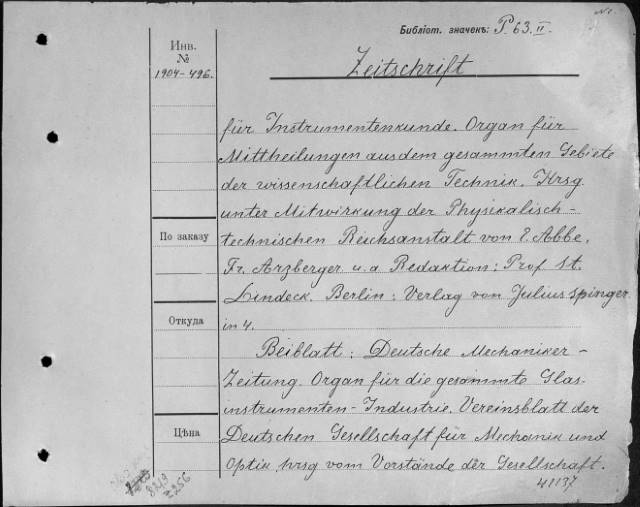 Библіот. значекъ: P. 63. II.
Инв.
№
1904-496.
Zeitschrift
für Instrumentenkunde. Organ für
Mittheilungen aus dem gesammten Gebiete
der wissenschaftlichen Technik. Hrsg.
unter Mitwirkung der Physikalisch-
По заказу
technischen Reichsanstalt von E. Abbe,
Fr. Arzberger u. a. Redaktion: Prof. St.
Lindeck. Berlin: Verlag von Julius Spinger.
Откуда
in 4.
Beiblatt: Deutsche Mechaniker-
Zeitung. Organ für die gesammte Glas-
instrumenten-Industrie. Vereinsblatt der
Цѣна
Deutschen Gesellschaft für Mechanik und
Optik hrsg vom Vorstände der Gesellschaft.
8219
2256
41137